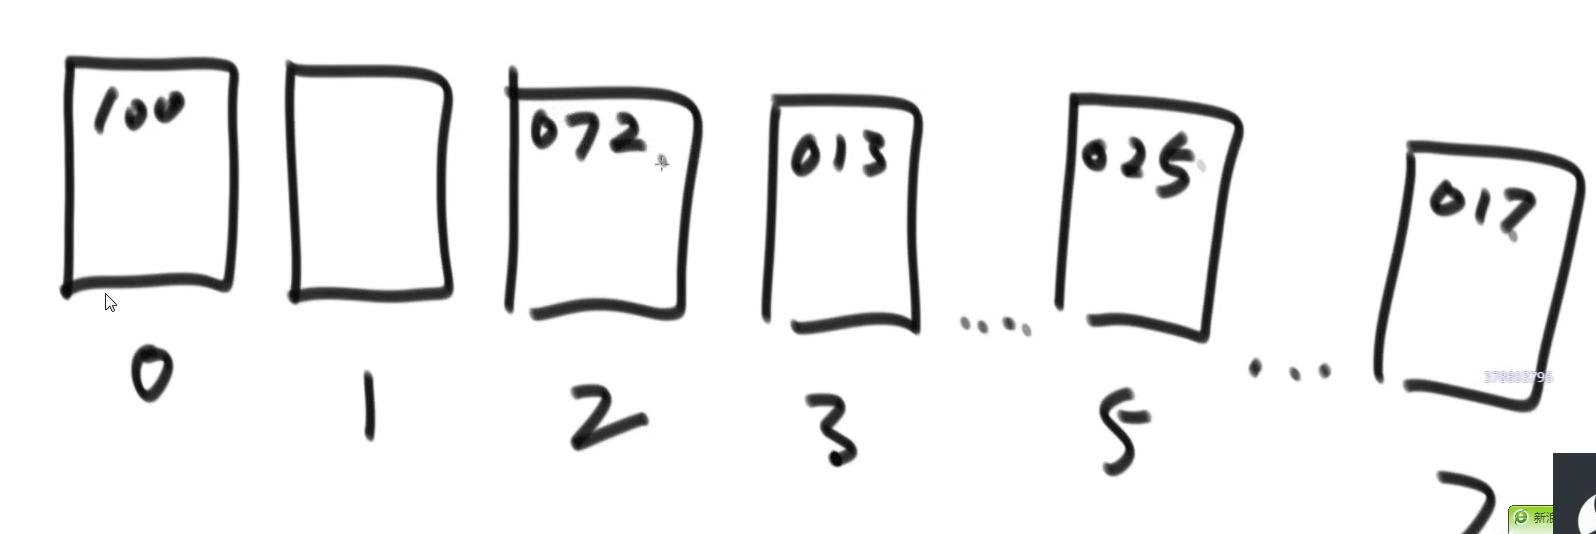 100 072 013 025 017
0 1 2 3 .... 5 ... 7
378802796
新浪